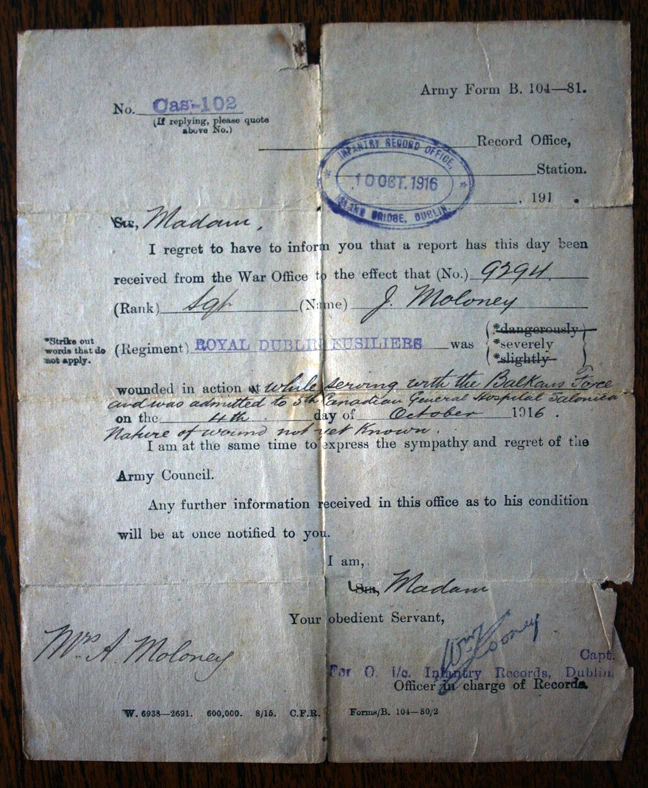 Army Form B. 104—81.
No. Cas-102
(If replying, please quote
above No.)
Record Office,
Station.
, 191 .
INFANTRY RECORD OFFICE,
10 OCT. 1916
ISLAND BRIDGE, DUBLIN.
Sir, Madam,
I regret to have to inform you that a report has this day been
received from the War Office to the effect that (No.) 9294
(Rank) Sgt (Name) J. Moloney
(Regiment) ROYAL DUBLIN FUSILIERS was
*dangerously
*severely
*slightly
*Strike out
words that do
not apply.
wounded in action at while serving with the Balkans Force
and was admitted to 5th Canadian General Hospital Salonica
on the 4th day of October 1916 .
Nature of wound not yet known.
I am at the same time to express the sympathy and regret of the
Army Council.
Any further information received in this office as to his condition
will be at once notified to you.
I am,
Sir, Madam
Your obedient Servant,
Mrs A. Moloney
Capt.
For O. i/c. Infantry Records, Dublin.
Officer in charge of Records.
W. 6938—2691. 600,000. 8/15. C.F.R. Forms/B. 104—80/2